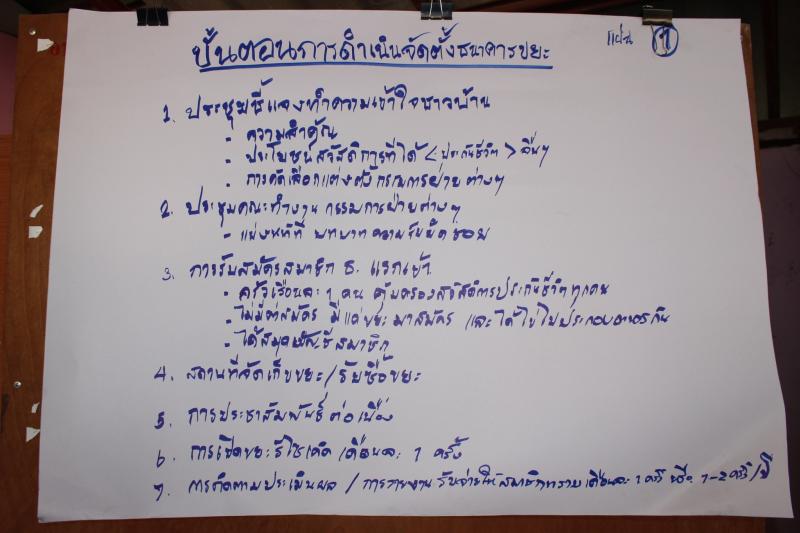 ขั้นตอนการดำเนินจัดตั้งธนาคารขยะ
แผ่น 1
1. ประชุมชี้แจงทำความเข้าใจชาวบ้าน
- ความสำคัญ
- ประโยชน์สวัสดิการที่ได้ <ประกันชีวิต> อื่นๆ
- การคัดเลือกแต่งตั้งกรรมการฝ่ายต่างๆ
2. ประชุมคณะทำงาน กรรมการฝ่ายต่างๆ
- แบ่งหน้าที่ บทบาท ความรับผิดชอบ
3. การรับสมัครสมาชิก ธ. แรกเข้า
- ครัวเรือนละ 1 คน คุ้มครองสวัสดิการประกันชีวิตทุกคน
- ไม่มีค่าสมัคร มีแต่ขยะมาสมัคร และได้ไข่ไปประกอบอาหารกิน
- ได้สมุดบัญชีสมาชิก
4. สถานที่จัดเก็บขยะ/รับซื้อขยะ
5. การประชาสัมพันธ์ต่อเนื่อง
6. การเปิดขยะรีไซเคิล เดือนละ 1 ครั้ง
7. การติดตามประเมินผล / การรายงาน รับจ่ายให้สมาชิกทราบเดือนละ 1 ครั้ง หรือ 1-2 ครั้ง/ปี